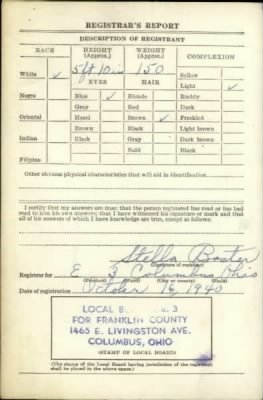 REGISTRAR'S REPORT
DESCRIPTION OF REGISTRANT
RACE HEIGHT (Approx.) WEIGHT (Approx.) COMPLEXION
White ✓ 5 ft 10 in 150 Sallow
EYES HAIR Light ✓
Negro Blue ✓ Blonde Ruddy
Gray Red Dark
Oriental Hazel Brown ✓ Freckled
Brown Black Light brown
Indian Black Gray Dark brown
Bald Black
Filipino
Other obvious physical characteristics that will aid in identification
I certify that my answers are true; that the person registered has read or has had
read to him his own answers; that I have witnessed his signature or mark and that
all of his answers of which I have knowledge are true, except as follows:
Stella
(Signature of registrar)
Registrar for E 3 Columbus, Ohio
(Precinct) (Ward) (City or county) (State)
Date of registration October 16, 1940
LOCAL 3
FOR FRANKLIN COUNTY
1465 E. LIVINGSTON AVE.
COLUMBUS, OHIO
(STAMP OF LOCAL BOARD)
(The stamp of the Local Board having jurisdiction of the registrant
shall be placed in the above space.)